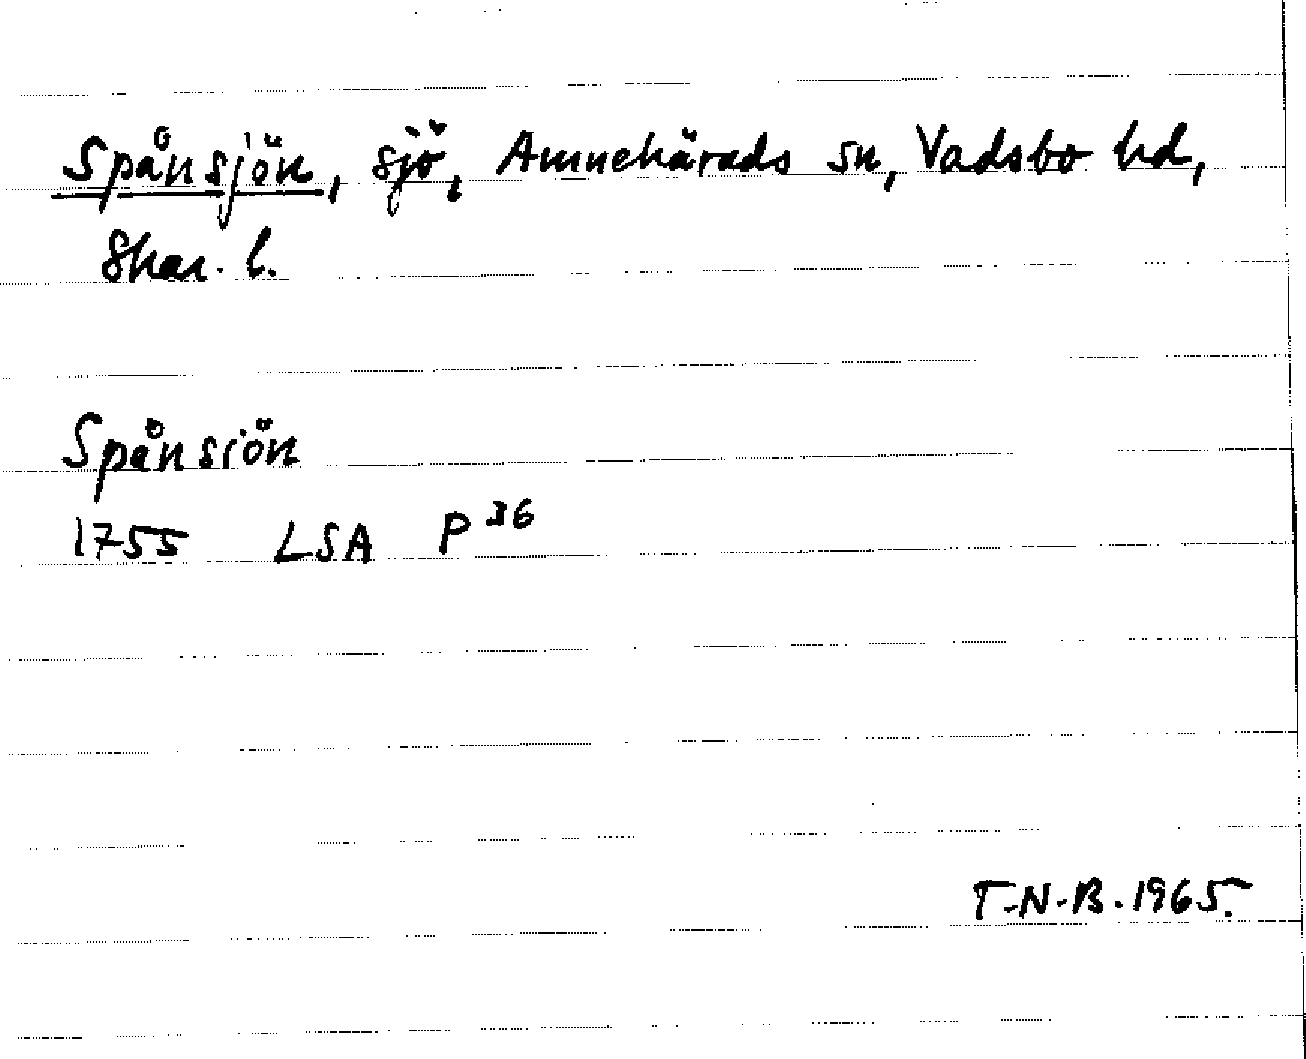 Spånsjön, sjö, Amnehärads sn, Vadsbo hd,
Skar. l.
Spånsiön
1755 LSA P 36
T.N.B. 1965.